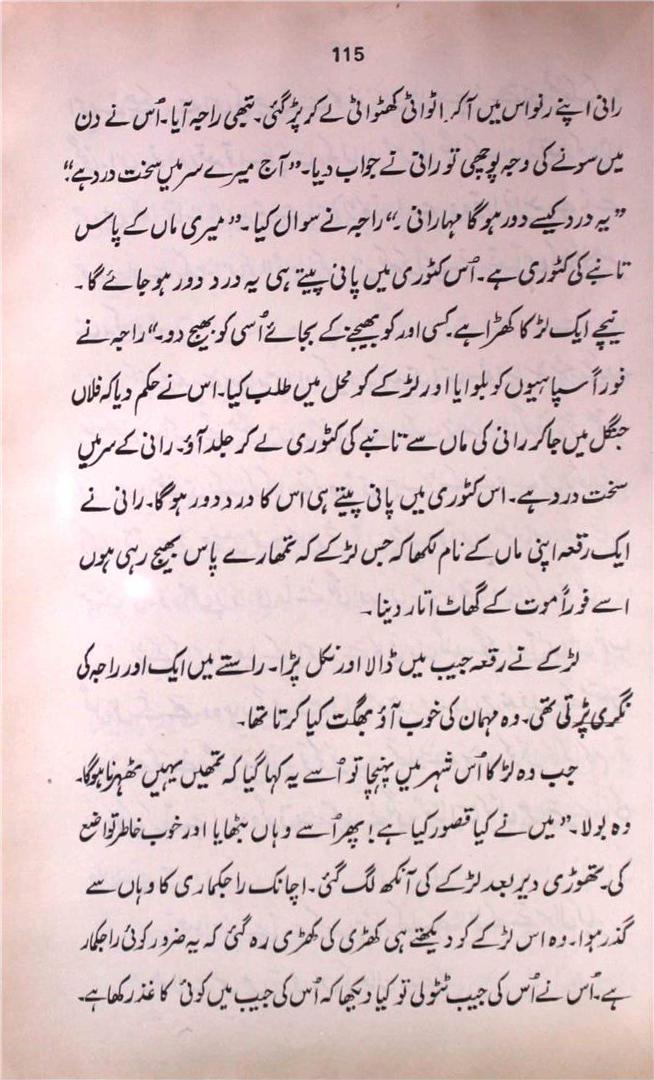 115
رانی اپنے رنواس میں آکر اٹواٹی کھٹواٹی لے کر پڑ گئی۔ تبھی راجہ آیا۔ اُس نے دن
میں سونے کی وجہ پوچھی تو رانی نے جواب دیا۔ ”آج میرے سر میں سخت درد ہے“
”یہ درد کیسے دور ہوگا مہارانی۔“ راجہ نے سوال کیا۔ ”میری ماں کے پاس
تانبے کی کٹوری ہے۔ اُس کٹوری میں پانی پیتے ہی یہ درد دور ہو جائے گا۔
نیچے ایک لڑکا کھڑا ہے کسی اور کو بھیجنے کے بجائے اُسی کو بھیج دو۔“ راجہ نے
فوراً سپاہیوں کو بلوایا اور لڑکے کو محل میں طلب کیا۔ اس نے حکم دیا کہ فلاں
جنگل میں جاکر رانی کی ماں سے تانبے کی کٹوری لے کر جلد آؤ۔ رانی کے سر میں
سخت درد ہے۔ اس کٹوری میں پانی پیتے ہی اس کا درد دور ہوگا۔ رانی نے
ایک رقعہ اپنی ماں کے نام لکھا کہ جس لڑکے کہ تمھارے پاس بھیج رہی ہوں
اسے فوراً موت کے گھاٹ اتار دینا۔
لڑکے نے رقعہ جیب میں ڈالا اور نکل پڑا۔ راستے میں ایک اور راجہ کی
نگری پڑتی تھی۔ وہ مہمان کی خوب آؤ بھگت کیا کرتا تھا۔
جب وہ لڑکا اُس شہر میں پہنچا تو اُسے یہ کہا گیا کہ تمھیں یہیں ٹھہرنا ہوگا۔
وہ بولا۔ ”میں نے کیا قصور کیا ہے! پھر اُسے وہاں بٹھایا اور خوب خاطر تواضع
کی۔ تھوڑی دیر بعد لڑکے کی آنکھ لگ گئی۔ اچانک راجکماری کا وہاں سے
گذر ہوا۔ وہ اس لڑکے کو دیکھتے ہی کھڑی کی کھڑی رہ گئی کہ یہ ضرور کوئی راجکمار
ہے۔ اُس نے اُس کی جیب ٹٹولی تو کیا دیکھا کہ اُس کی جیب میں کوئی کاغذ رکھا ہے۔